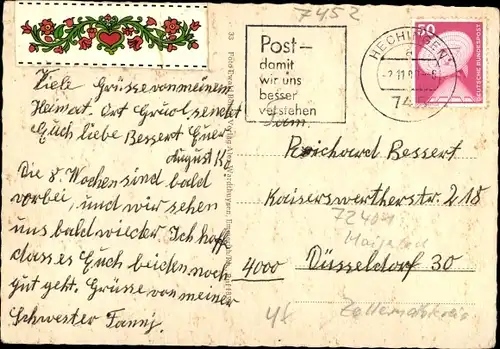 7452
Post—
damit
wir uns
besser
verstehen
HECHINGEN
50
DEUTSCHE BUNDESPOST
Viele Grüsse von meinem
Heimat. Ort Gruol sendet
Euch liebe Bessert Euer
August K.
Die 8 Wochen sind bald
vorbei, und wir sehen
uns bald wieder Ich hoff
dass es Euch beiden noch
gut geht. Grüsse von meiner
Schwester Fanny.
Fam.
Richard Bessert
Kaiserswertherstr. 218
72404
4000 Düsseldorf 30